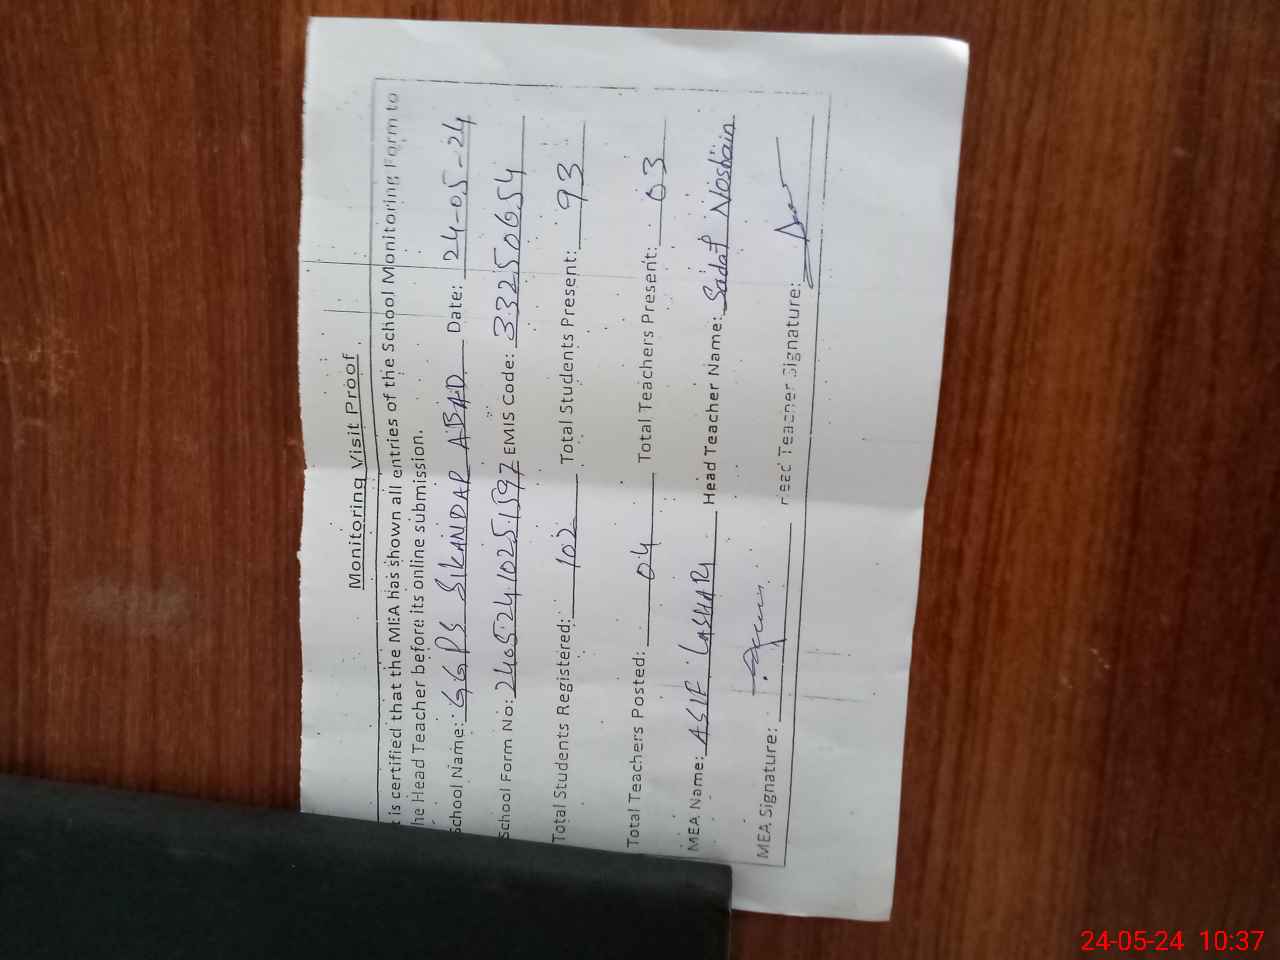 Monitoring Visit Proof
t is certified that the MEA has shown all entries of the School Monitoring Form to
he Head Teacher before its online submission.
School Name: GGPS SIKANDAR ABAD Date: 24-05-24
School Form No: 24052410251597 EMIS Code: 33250654
Total Students Registered: 102 Total Students Present: 93
Total Teachers Posted: 04 Total Teachers Present: 03
MEA Name: ASIF LASHARI Head Teacher Name: Sadaf Noshain
MEA Signature: Head Teacher Signature:
24-05-24 10:37